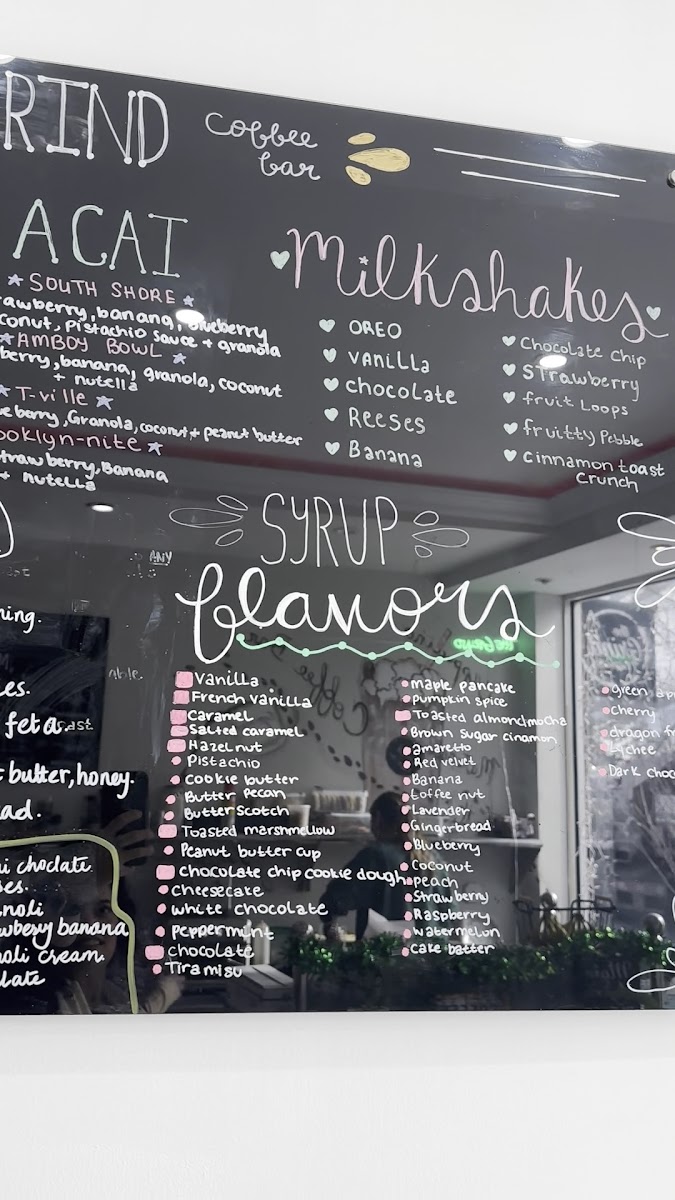 RIND
coffee
bar
ACAI
SOUTH SHORE
rawberry, banana, blueberry
conut, Pistachio Sauce + granola
AMBOY BOWL
berry, banana, granola, coconut
+ nutella
T-ville
eberry, Granola, coconut + peanut butter
ooklyn-nite
trawberry, Banana
+ nutella
Milkshakes
OREO
vanilla
chocolate
Reeses
Banana
Chocolate Chip
Strawberry
fruit Loops
fruitty Pebble
cinnamon toast
Crunch
ANY
ning.
es.
feta.
t butter, honey.
ad.
ni choclate
ses.
nnoli
wbery banana
noli cream
late
SYRUP
flavors
Vanilla
French vanilla
Caramel
Salted caramel
Hazelnut
Pistachio
Cookie butter
Butter Pecan
Butter Scotch
Toasted marshmellow
Peanut butter cup
chocolate chip cookie dough
Cheesecake
white chocolate
Peppermint
chocolate
Tiramisu
maple pancake
pumpkin spice
Toasted almond mocha
Brown sugar cinamon
amaretto
Red velvet
Banana
toffee nut
Lavender
Gingerbread
Blueberry
Coconut
Peach
Strawberry
Raspberry
watermelon
Cake batter
green ap
cherry
dragon fr
Lychee
Dark choc